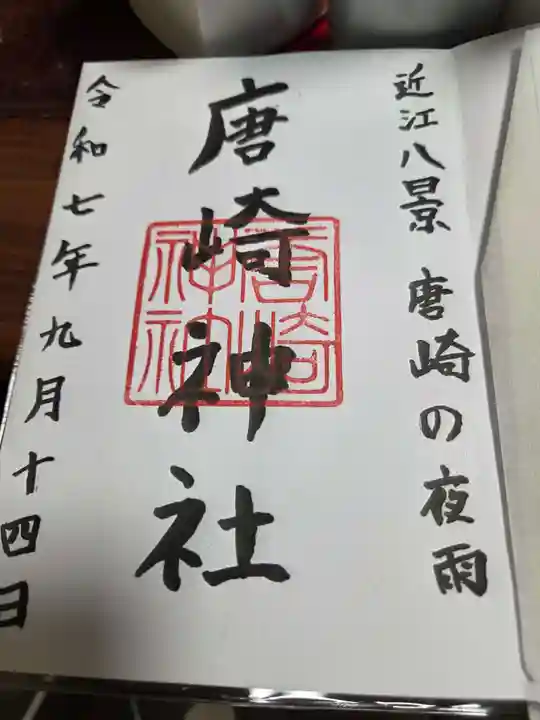 近江八景 唐崎の夜雨
唐崎神社
唐崎神社
令和七年九月十四日